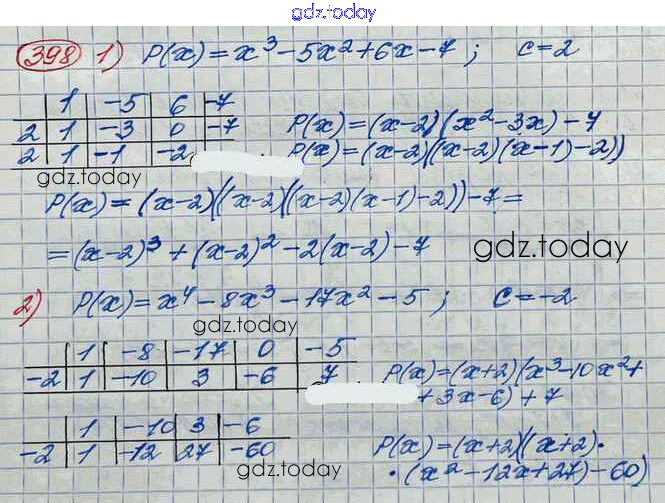 gdz.today
398 1) P(x) = x³ - 5x² + 6x - 7; c = 2
1 -5 6 -7
2 1 -3 0 -7 P(x) = (x-2)(x² - 3x) - 7
2 1 -1 -2 P(x) = (x-2)((x-2)(x-1)-2))
gdz.today
P(x) = (x-2)((x-2)((x-2)(x-1)-2))-7 =
= (x-2)³ + (x-2)² - 2(x-2) - 7 gdz.today
2) P(x) = x⁴ - 8x³ - 17x² - 5; c = -2
gdz.today
1 -8 -17 0 -5
-2 1 -10 3 -6 7 P(x) = (x+2)(x³ - 10x² +
+ 3x - 6) + 7
1 -10 3 -6
-2 1 -12 27 -60 P(x) = (x+2)((x+2)·
·(x² - 12x + 27) - 60)
gdz.today